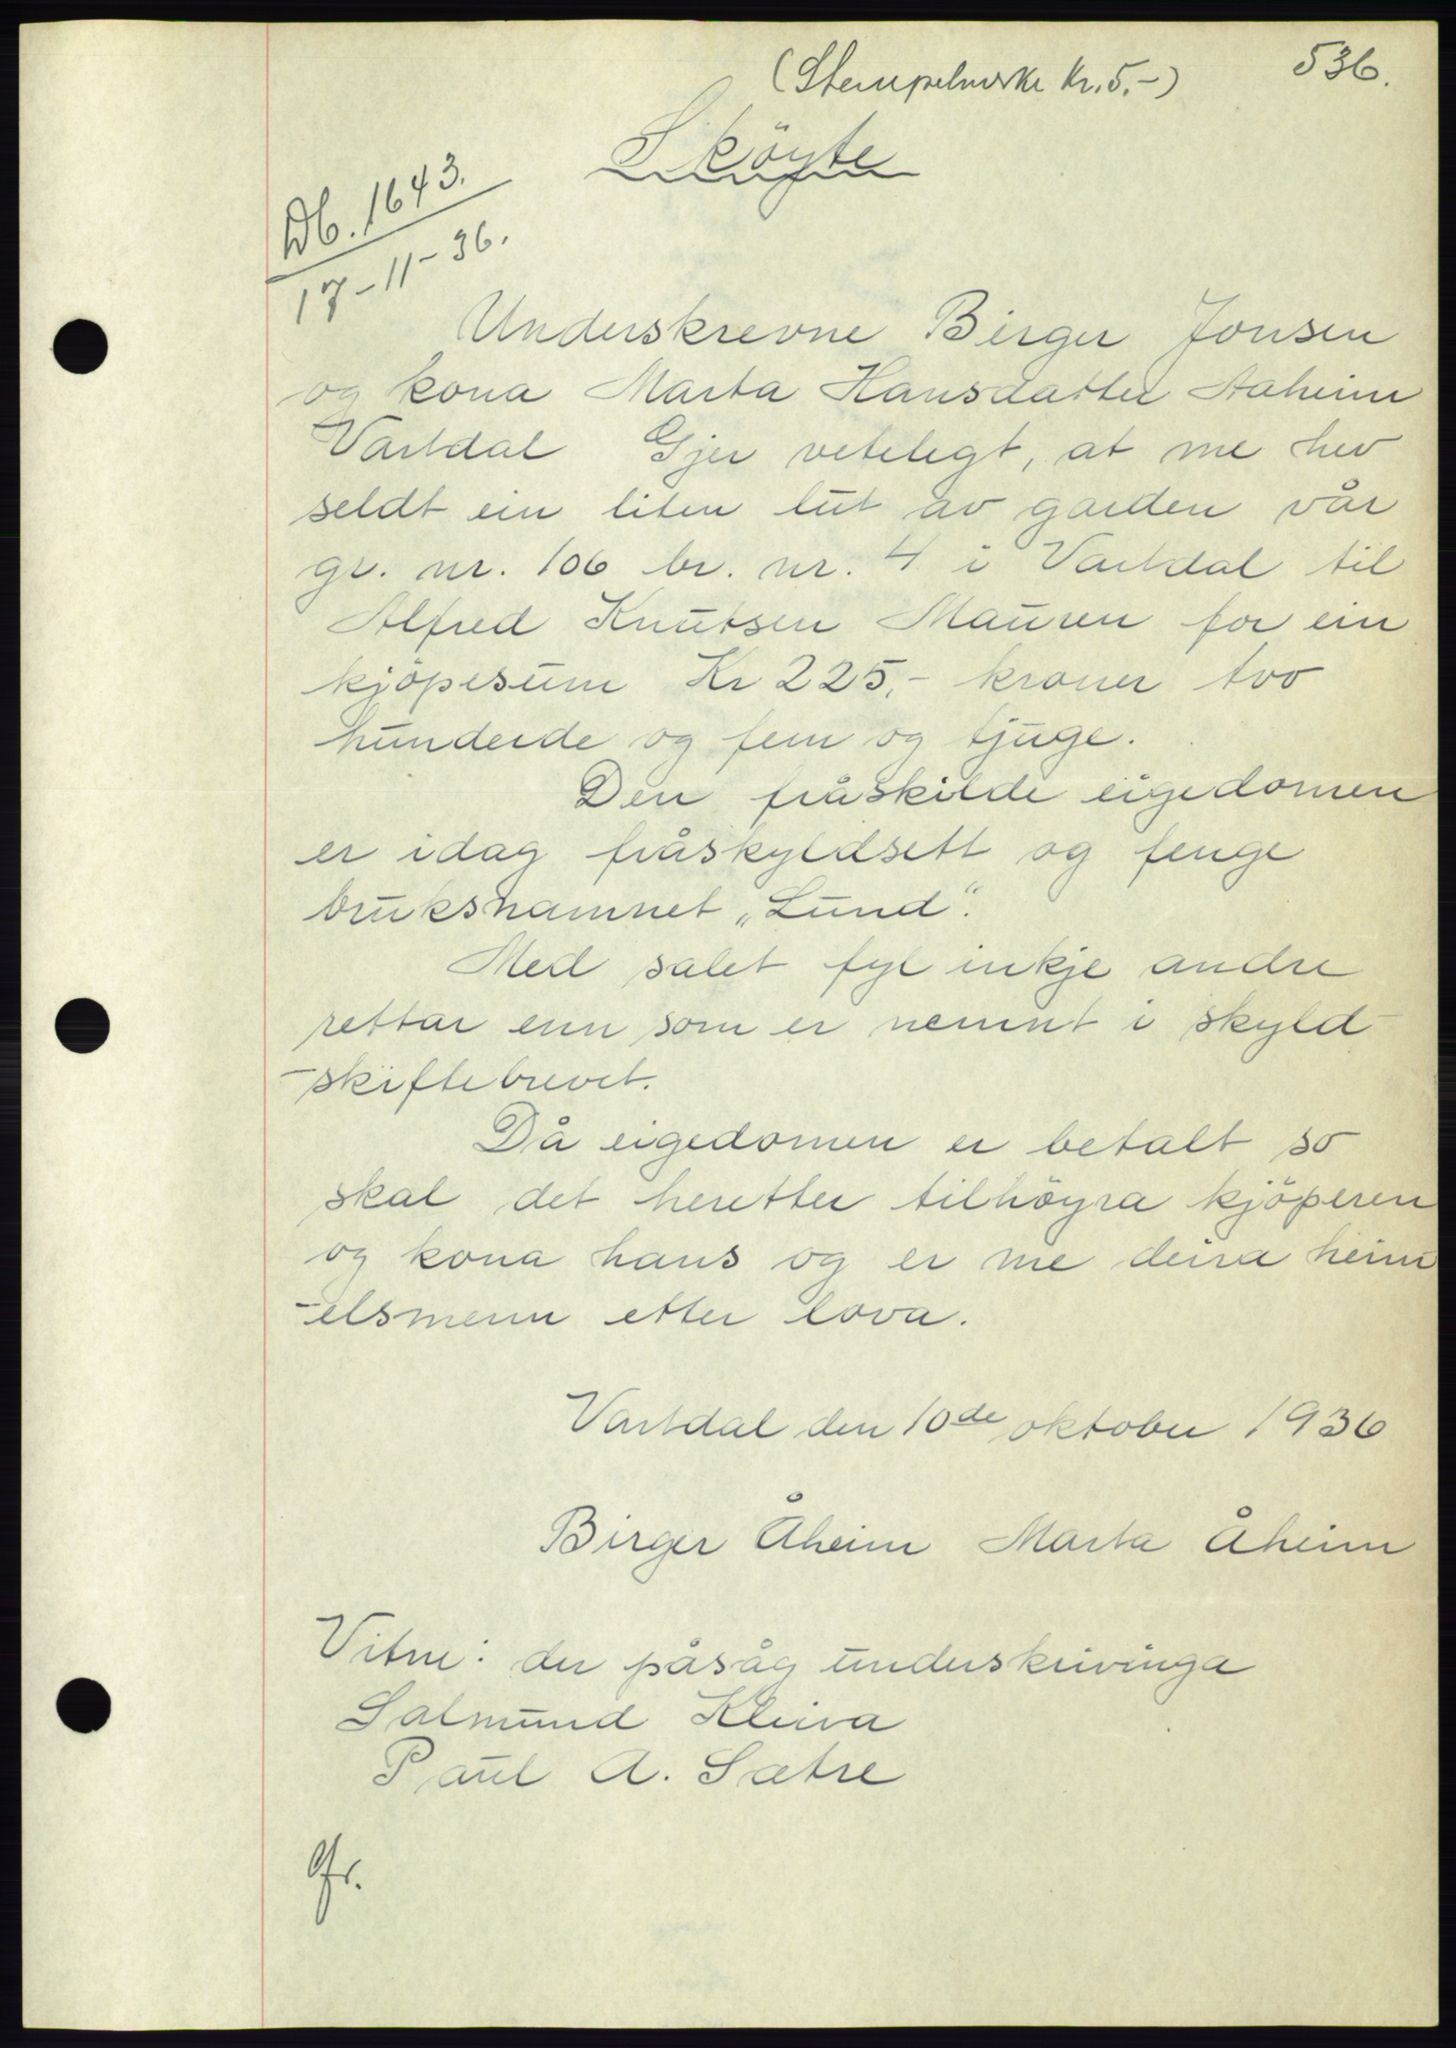 (Stempelmerke kr. 5.-) 536.
Sköyte
Db. 1643.
17-11-36.
Underskrevne Birger Jonsen
og kona Marta Hansdatter Aaheim
Vartdal Gjer vetelegt, at me hev
seldt ein liten lut av garden vår
gr. nr. 106 br. nr. 4 i Vartdal til
Alfred Knutsen Mauren for ein
kjöpesum Kr 225,- kroner tvo
hunderde og fem og tjuge.
Den fråskilde eigedomen
er idag fråskyldsett og fenge
bruksnamnet „Lund".
Med salet fyl inkje andre
rettar enn som er nemnt i skyld
-skiftebrevet.
Då eigedomen er betalt so
skal det heretter tilhöyra kjöperen
og kona hans og er me deira heim
-elsmenn etter lova.
Vartdal den 10de oktober 1936
Birger Åheim Marta Åheim
Vitne: der påsåg underskrivinga
Salmund Kleiva
Paul A. Sætre
Gr.